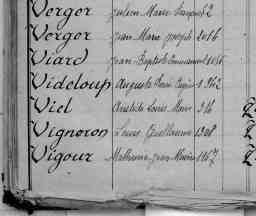 Verger Julien Marie François 2
Vergor Jean Marie Joseph 2016
Viard Jean Baptiste Emmanuel 1016
Videloup Auguste René Eugène 1362
Viel Aristide Louis Marie 316
Vigneron Louis Guillaume 1308
Vigour Mathurin Jean Marie 1167